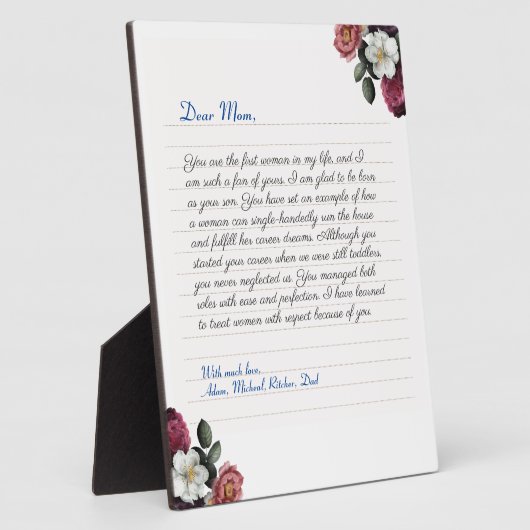 Dear Mom,
You are the first woman in my life, and I
am such a fan of yours. I am glad to be born
as your son. You have set an example of how
a woman can single-handedly run the house
and fulfill her career dreams. Although you
started your career when we were still toddlers,
you never neglected us. You managed both
roles with ease and perfection. I have learned
to treat women with respect because of you.
With much love,
Adam, Micheal, Ritcher, Dad